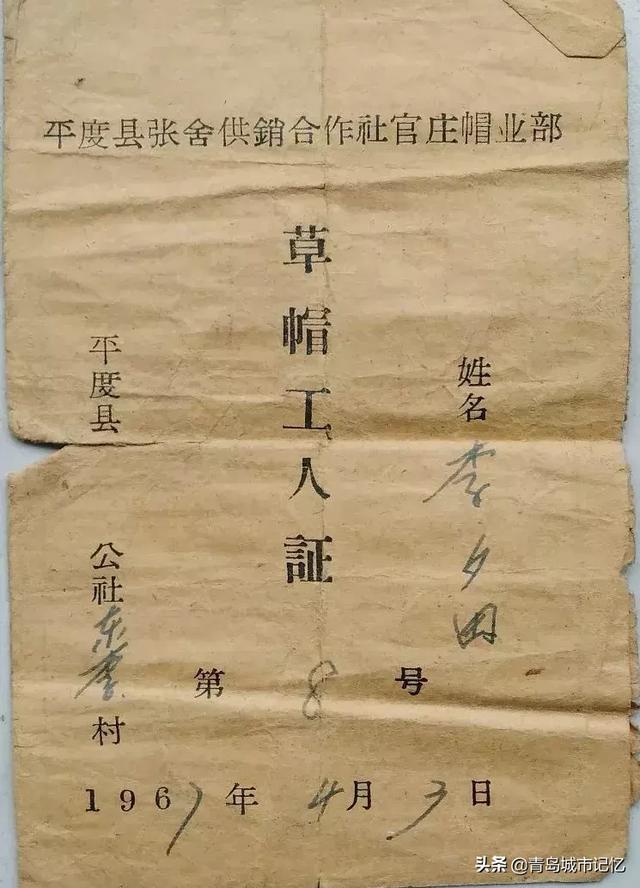 平度县张舍供銷合作社官庄帽业部
草帽工人証
姓名 李夕田
平度县 公社东李村
第 8 号
1967年4月3日
头条 @青岛城市记忆